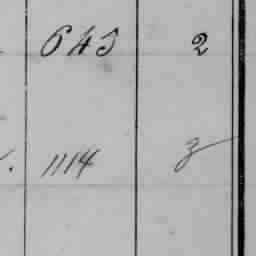 645 2
1114 3